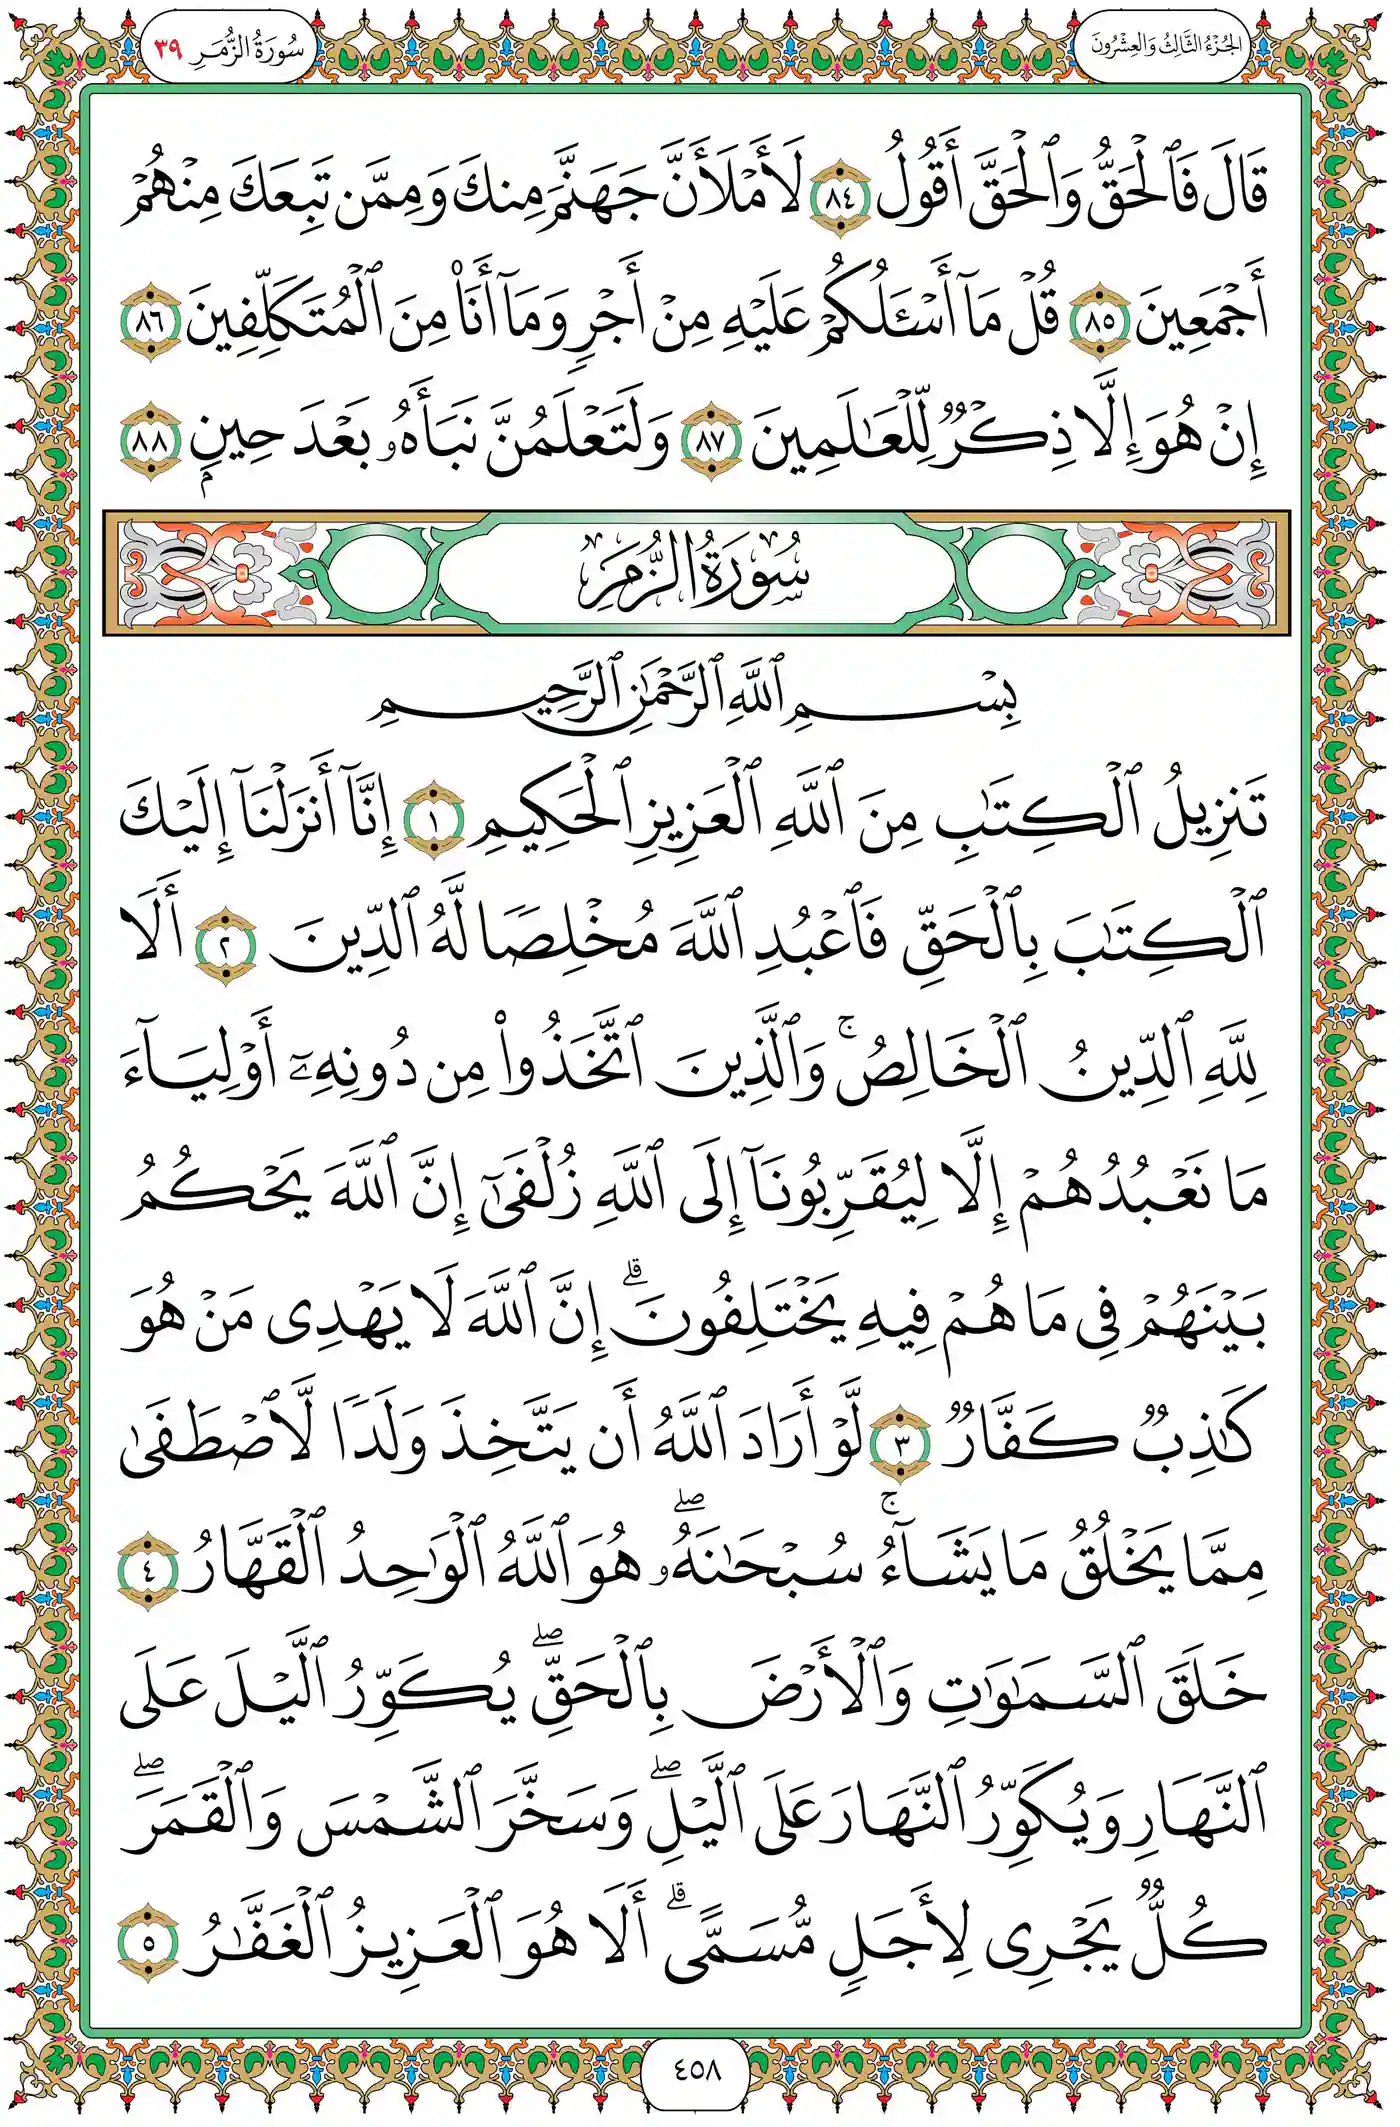 الجُزْءُ الثَّالِثُ وَالعِشْرُونَ
سُورَةُ الزُّمَرِ ٣٩
قَالَ فَٱلْحَقُّ وَٱلْحَقَّ أَقُولُ ٨٤ لَأَمْلَأَنَّ جَهَنَّمَ مِنكَ وَمِمَّن تَبِعَكَ مِنْهُمْ
أَجْمَعِينَ ٨٥ قُلْ مَآ أَسْـَٔلُكُمْ عَلَيْهِ مِنْ أَجْرٍ وَمَآ أَنَا۠ مِنَ ٱلْمُتَكَلِّفِينَ ٨٦
إِنْ هُوَ إِلَّا ذِكْرٌ لِّلْعَٰلَمِينَ ٨٧ وَلَتَعْلَمُنَّ نَبَأَهُۥ بَعْدَ حِينٍۭ ٨٨
سُورَةُ الزُّمَرِ
بِسْمِ ٱللَّهِ ٱلرَّحْمَٰنِ ٱلرَّحِيمِ
تَنزِيلُ ٱلْكِتَٰبِ مِنَ ٱللَّهِ ٱلْعَزِيزِ ٱلْحَكِيمِ ١ إِنَّآ أَنزَلْنَآ إِلَيْكَ
ٱلْكِتَٰبَ بِٱلْحَقِّ فَٱعْبُدِ ٱللَّهَ مُخْلِصًا لَّهُ ٱلدِّينَ ٢ أَلَا
لِلَّهِ ٱلدِّينُ ٱلْخَالِصُ ۚ وَٱلَّذِينَ ٱتَّخَذُوا۟ مِن دُونِهِۦٓ أَوْلِيَآءَ
مَا نَعْبُدُهُمْ إِلَّا لِيُقَرِّبُونَآ إِلَى ٱللَّهِ زُلْفَىٰٓ إِنَّ ٱللَّهَ يَحْكُمُ
بَيْنَهُمْ فِى مَا هُمْ فِيهِ يَخْتَلِفُونَ ۗ إِنَّ ٱللَّهَ لَا يَهْدِى مَنْ هُوَ
كَٰذِبٌ كَفَّارٌ ٣ لَّوْ أَرَادَ ٱللَّهُ أَن يَتَّخِذَ وَلَدًا لَّٱصْطَفَىٰ
مِمَّا يَخْلُقُ مَا يَشَآءُ ۚ سُبْحَٰنَهُۥ ۖ هُوَ ٱللَّهُ ٱلْوَٰحِدُ ٱلْقَهَّارُ ٤
خَلَقَ ٱلسَّمَٰوَٰتِ وَٱلْأَرْضَ بِٱلْحَقِّ ۖ يُكَوِّرُ ٱلَّيْلَ عَلَى
ٱلنَّهَارِ وَيُكَوِّرُ ٱلنَّهَارَ عَلَى ٱلَّيْلِ ۖ وَسَخَّرَ ٱلشَّمْسَ وَٱلْقَمَرَ ۖ
كُلٌّ يَجْرِى لِأَجَلٍ مُّسَمًّى ۗ أَلَا هُوَ ٱلْعَزِيزُ ٱلْغَفَّٰرُ ٥
٤٥٨